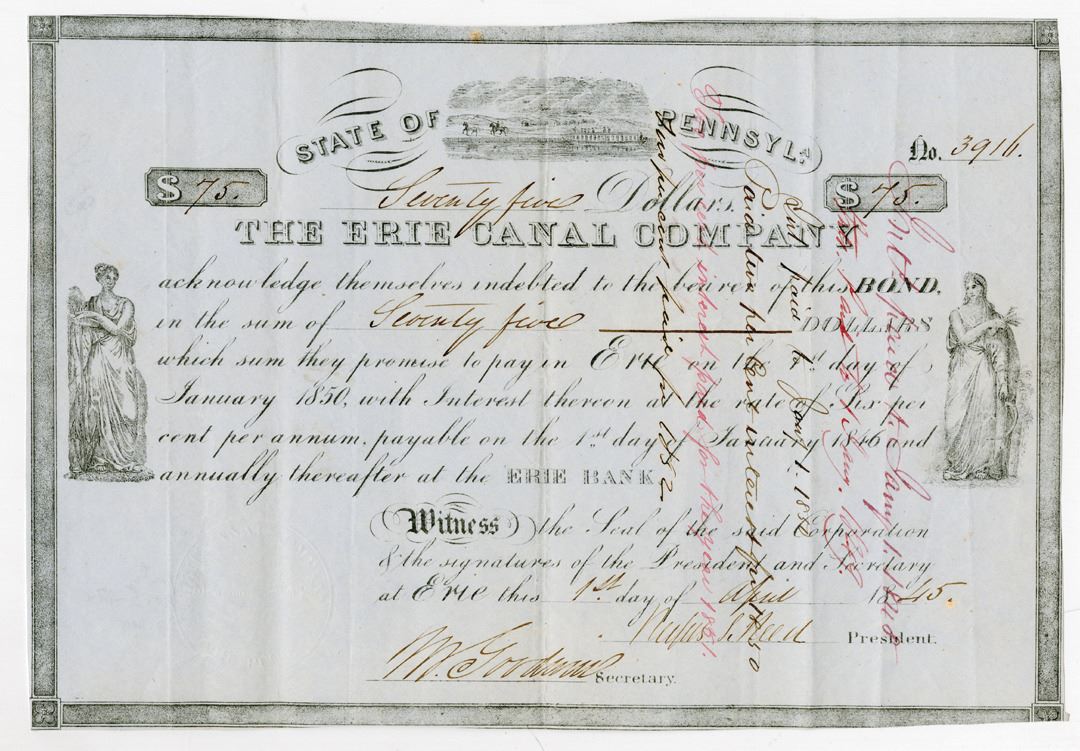 STATE OF PENNSYLA.
No. 3916.
$ 75. $ 75.
Seventy five Dollars.
THE ERIE CANAL COMPANY
acknowledge themselves indebted to the bearer of this BOND,
in the sum of Seventy five DOLLARS
which sum they promise to pay in Erie on the 1st day of
January 1850, with Interest thereon at the rate of Six per
cent per annum, payable on the 1st day of January 1846 and
annually thereafter at the ERIE BANK
Witness the Seal of the said Corporation
& the signatures of the President, and Secretary
at Erie this 1st day of April 1845.
Rufus S. Reed President.
Secretary.
Six per cent paid for 1852
Six per cent interest paid for the year 1851.
Paid six per cent interest for 1850
Int paid to Jany 1. 1850
Int. paid to Jany. 1.
Int. paid to Jany.